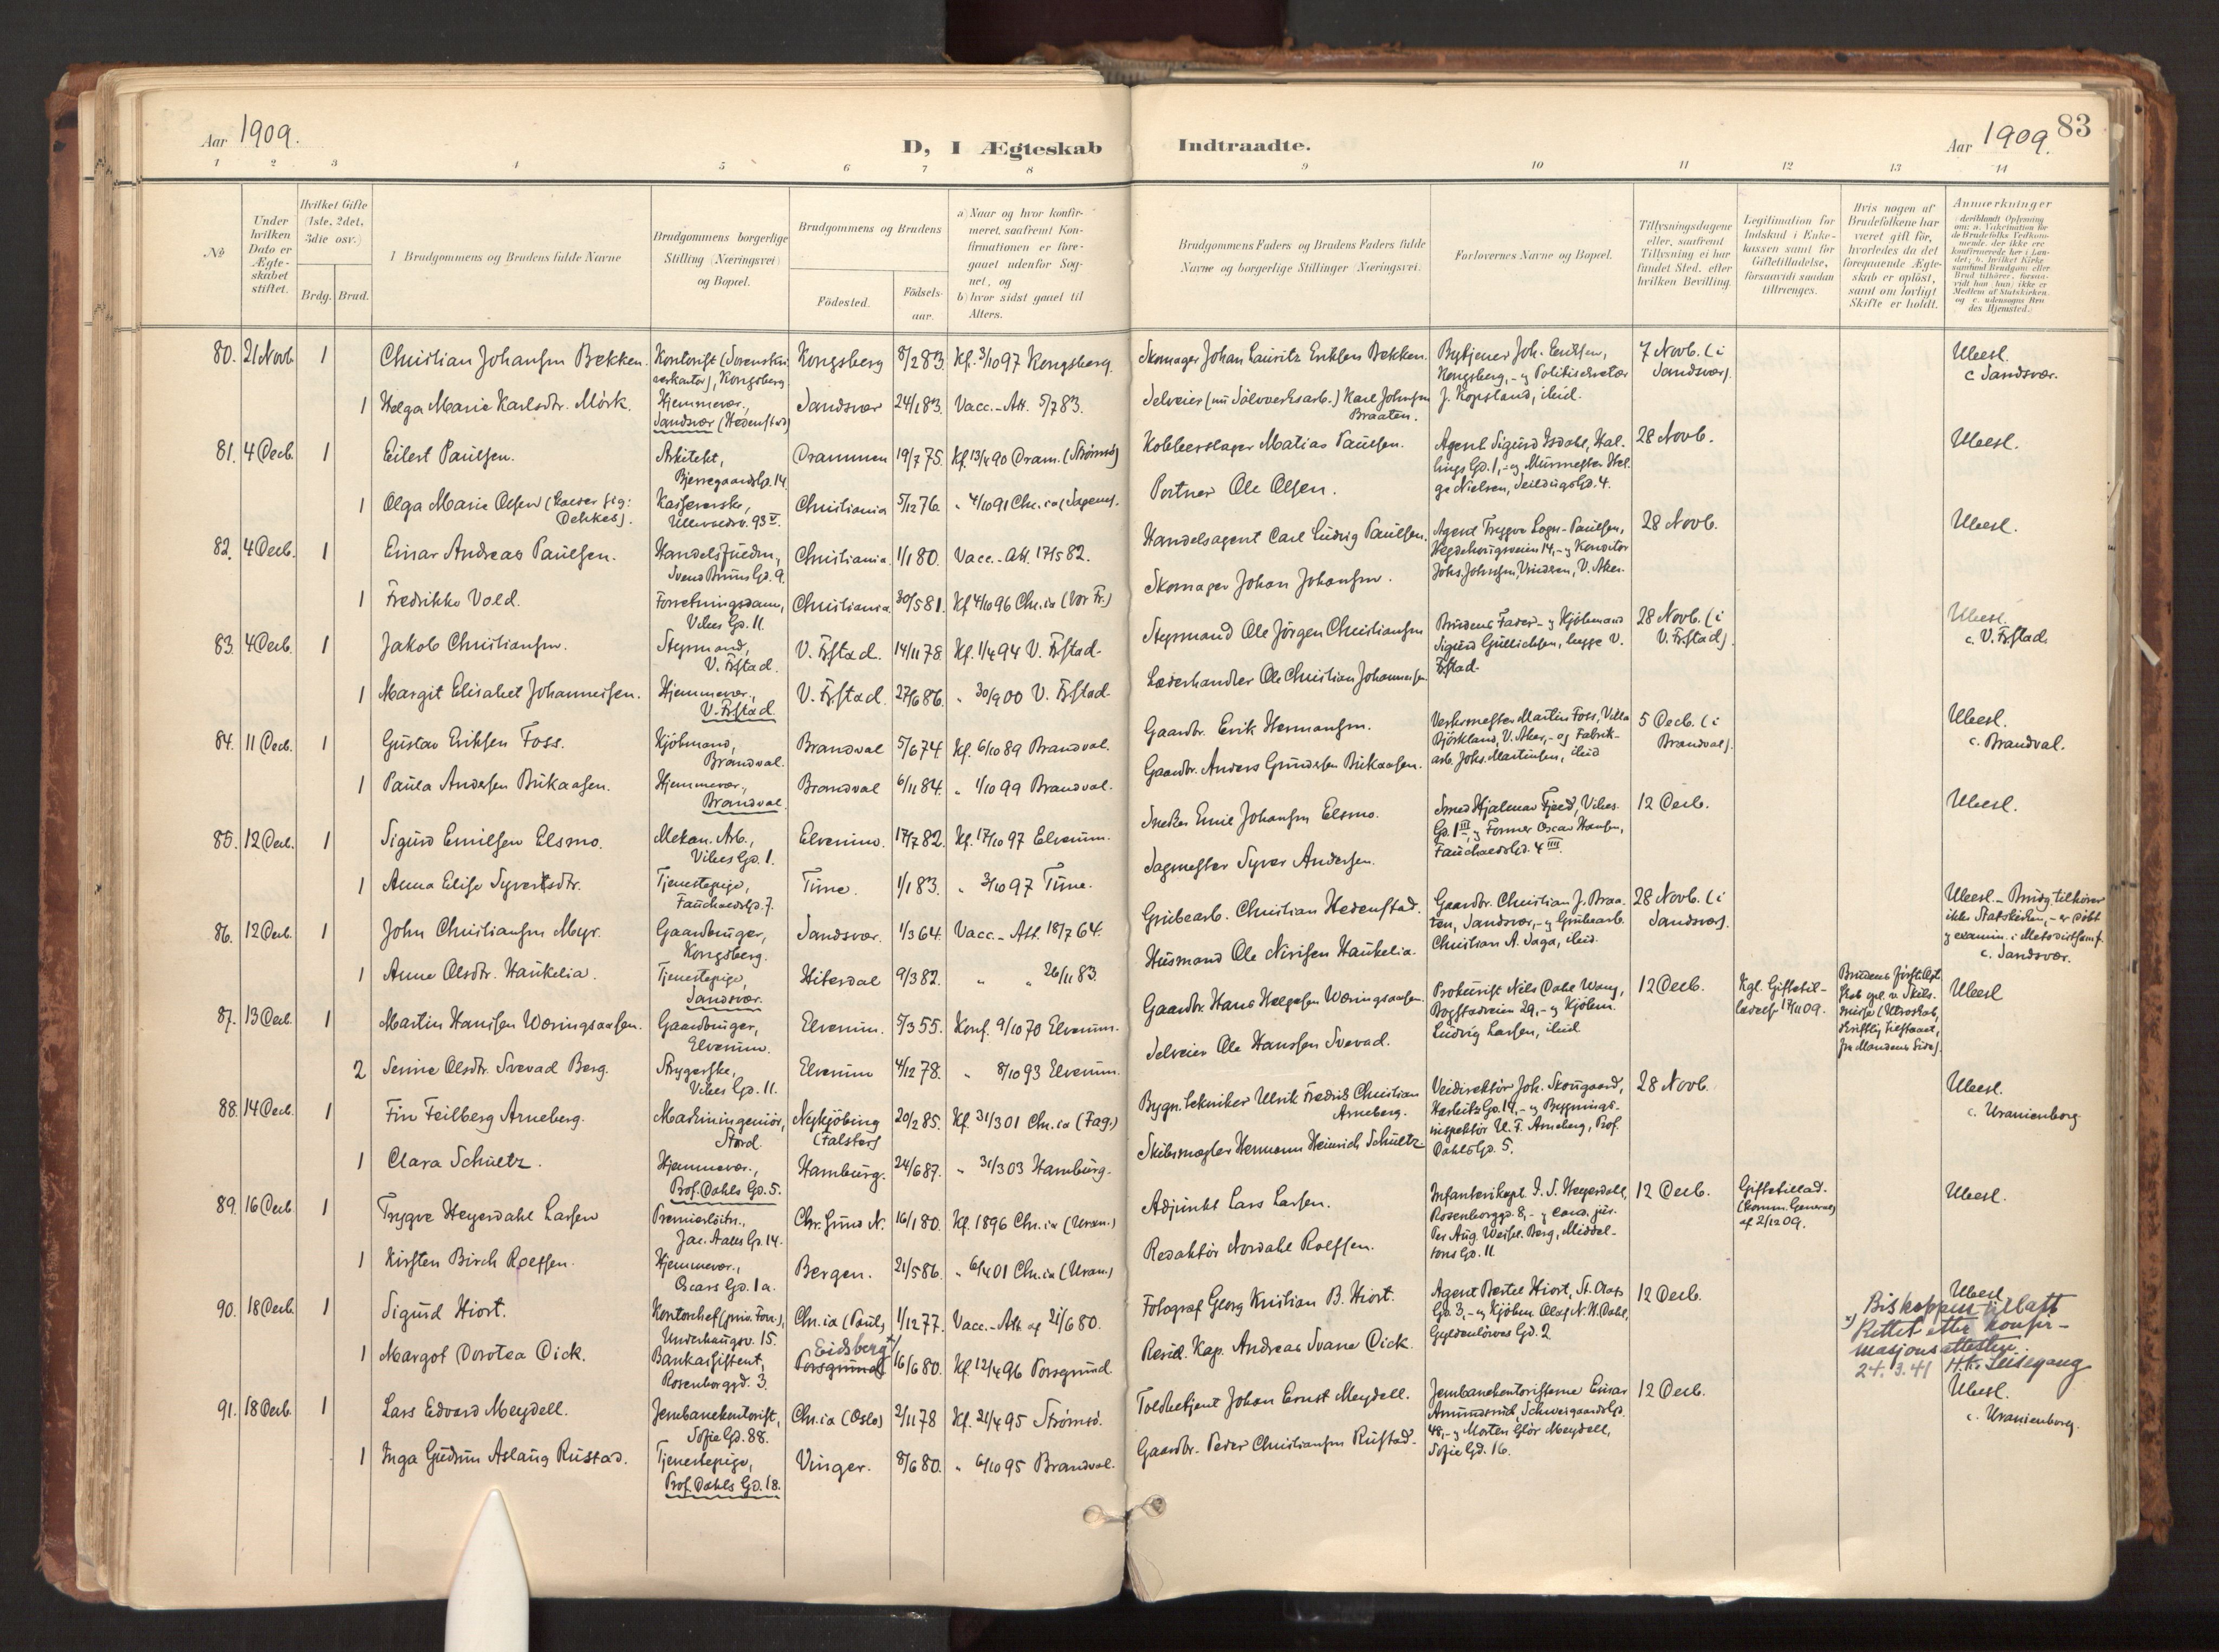 Aar 1909.
D, I Ægteskab Indtraadte.
Aar 1909.
83
1 2 3 4 5 6 7 8 9 10 11 12 13 14
No
Under hvilken Dato er Ægteskabet stiftet.
Hvilket Gifte (1ste, 2det, 3die osv.)
Brdg. Brud.
Brudgommens og Brudens fulde Navne
Brudgommens borgerlige Stilling (Næringsvei) og Bopæl.
Brudgommens og Brudens
Födested.
Födselsaar.
a) Naar og hvor konfirmeret, saafremt Konfirmationen er foregaaet udenfor Sognet, og
b) hvor sidst gaaet til Alters.
Brudgommens Faders og Brudens Faders fulde Navne og borgerlige Stillinger (Næringsvei.
Forlovernes Navne og Bopæl.
Tillysningsdagene eller, saafremt Tillysning ei har fundet Sted, efter hvilken Bevilling.
Legitimation for Indskud i Enkekassen samt for Giftetilladelse, forsaavidt saadan tiltrænges.
Hvis nogen af Brudefolkene har været gift før, hvorledes da det foregaaende Ægteskab er opløst, samt om lovligt Skifte er holdt.
Anmerkninger
80. 21 Novb 1 Christian Johansen Bekken. Kontorist (Sorenskriverkontor), Kongsberg Kongsberg 8/2 83. Kf. 3/10 97 Kongsberg. Skomager Johan Lauritz Eriksen Bekken. Bytjener Joh. Eriksen, Kongsberg, - og Politisekretær J. Kopsland, ibid. 7 Novb. (i Sandsvær). Ubesl. c Sandsvær.
1 Helga Marie Karlsdtr. Mörk. Hjemmevær., Sandsvær (Hedenstad) Sandsvær 24/1 83. Vacc.-Att. 5/7 83. Selveier (nu Sölvverksarb.) Karl Johnsen Braaten.
81. 4 Decb. 1 Eilert Paulsen. Arkitekt, Bjerregaardsgd. 14. Drammen 19/7 75. Kf. 13/4 90 Dram. (Strömsö) Kobberslager Matias Paulsen. Agent Sigurd Isdahl, Hallings Gd. 1, - og Murmester Helge Nielsen, Seildugsgd. 4. 28 Novb. Ubesl.
1 Olga Marie Olsen (kalder sig: Dehkes). Kassererske, Ullevoldsv. 93 V. Christiania 5/12 76. " 4/10 91 Chr.ia (Sagenes). Portner Ole Olsen.
82. 4 Decb. 1 Einar Andreas Paulsen. Handelsfuldm., Svend Bruns Gd. 9. Christiania. 1/1 80. Vacc.-Att. 17/5 82. Handelsagent Carl Ludvig Paulsen. Agent Trygve Loger-Paulsen, Hegdehaugsveien 14, - og Konditor Johs. Johnsen, Vinderen, V. Aker. 28 Novb. Ubesl.
1 Fredrikke Vold. Forretningsdame, Vibes Gd. 11. Christiania. 30/5 81. Kf 4/10 96 Chr.ia (Vor Fr.) Skomager Johan Johansen.
83. 4 Decb. 1 Jakob Christiansen. Styrmand, V. Frstad. V. Frstad. 14/11 78. Kf. 1/4 94 V. Frstad. Styrmand Ole Jörgen Christiansen Brudens Fader - og Kjöbmand Sigurd Gullichsen, begge V. Frstad. 28 Novb. (i V. Frstad). Ubesl. c. V. Frstad.
1 Margit Elisabet Johannessen. Hjemmevær., V. Frstad. V. Frstad. 27/6 86. " 30/9 00 V. Frstad. Læderhandler Ole Christian Johannessen
84. 11 Decb. 1 Gustav Eriksen Foss. Kjöbmand, Brandval. Brandval 5/6 74. Kf. 6/10 89 Brandval. Gaardbr. Erik Hermansen. Verksmester Martin Foss, Villa Björkland, V. Aker, - og Fabrikarb. Johs. Martinsen, ibid 5 Decb. (i Brandval). Ubesl. c. Brandval.
1 Paula Andersen Bukaasen. Hjemmevær., Brandval. Brandval 6/11 84. " 1/10 99 Brandval. Gaardbr. Anders Gundersen Bukaasen.
85. 12 Decb. 1 Sigurd Emilsen Elsmo. Mekan. Arb., Vibes Gd. 1. Elverum. 17/7 82. Kf. 17/10 97 Elverum. Snekker Emil Johansen Elsmo. Smed Hjalmar Fjeld, Vibes Gd. 1 III, og Former Oscar Hansen, Fauchaldsgd. 4 III. 12 Decb. Ubesl.
1 Anna Elise Syvertsdtr. Tjenestepige, Fauchaldsgd. 7. Tune. 1/1 83. " 3/10 97 Tune. Sagmester Syver Andersen.
86. 12 Decb. 1 John Christiansen Myr. Gaardbruger, Kongsberg. Sandsvær. 1/3 64. Vacc.-Att. 18/7 64. Grubearb. Christian Hedenstad. Gaardbr. Christian J. Braaten, Sandsvær, - og Grubearb. Christian A. Saga, ibid. 28 Novb. (i Sandsvær). Ubesl. - Brudg. tilhører ikke Statskirken, - er döbt og examin. i Metodistsamf. c. Sandsvær.
1 Anne Olsdtr. Haukelia. Tjenestepige, Sandsvær. Hiterdal 9/3 82. " " 26/11 83 Husmand Ole Nirisen Haukelia.
87. 13 Decb. 1 Martin Hansen Wæringsaasen. Gaardbruger, Elverum. Elverum. 5/3 55. Konf. 9/10 70 Elverum. Gaardbr. Hans Helgesen Wæringsaasen. Prokurist Nils Dahl Wang, Bogstadveien 29, - og Kjöbm. Ludvig Larsen, ibid 12 Decb. Kgl. Giftetilladelse 17/11 09. Brudens første Ægteskab opl. v. Skilsmisse (Utroskab, skriftlig tilstaaet, fra Mandens Side). Ubesl
2 Senie Olsdtr. Svevad Berg. Strygerske, Vibes Gd. 11. Elverum 4/12 78. " 8/10 93 Elverum. Selveier Ole Hanssen Svevad.
88. 14 Decb. 1 Fin Feilberg Arneberg. Maskiningeniör, Stord. Nykjöbing (Falster) 20/2 85. Kf. 31/3 01 Chr.ia (Fag.) Bygn.tekniker Ulrik Fredrik Christian Arneberg. Veidirektör Joh. Skougaard, Harbitz Gd. 14, - og Bygningsinspektör U. F. Arneberg, Prof. Dahls Gd. 5. 28 Novb. Ubesl. c. Uranienborg
1 Clara Schultz. Hjemmevær., Prof. Dahls Gd. 5. Hamburg. 24/6 87. " 31/3 03 Hamburg. Skibsmægler Hermann Heinrich Schultz
89. 16 Decb 1 Trygve Heyerdahl Larsen Premierlöitn., Jac. Aalls Gd. 14. Chr.sund N. 16/1 80. Kf. 1896 Chr.ia (Uran.) Adjunkt Lars Larsen. Infanterikapt. I. S. Heyerdahl, Rosenborggd. 8, - og cand. jur. Per Aug. Weisel Berg, Middeltons Gd. 11 12 Decb. Giftetillad. (Komm. General) af 2/12 09. Ubesl.
1 Kirsten Birch Rolfsen. Hjemmevær., Oscars Gd. 1 a. Bergen. 21/5 86. " 6/4 01 Chr.ia (Uran.) Redaktör Nordahl Rolfsen.
90. 18 Decb 1 Sigurd Hiort. Kontorchef (priv. Forr.), Underhaugsv. 15. Chr.ia (Paul) 1/12 77. Vacc.-Att. af 21/6 80. Fotograf Georg Kristian B. Hiort. Agent Bertel Hiort, St. Olafs Gd. 3, - og Kjöbm. Olaf N. H. Dahl, Gyldenlöves Gd. 2 12 Decb. Ubesl
1 Margot Dorotea Dick. Bankassistent, Rosenborggd. 3. Eidsberg x) Porsgrund 16/6 80. Kf. 12/4 96 Porsgrund. Resid. Kap. Andreas Svane Dick.
x) Biskopens tillatt
Rettet etter konfirmasjonsattesten.
24.3.41 H.Kr. Leisegang
91. 18 Decb. 1 Lars Edvard Meydell. Jernbanekontorist, Sofie Gd. 88. Chr.ia (Oslo) 2/11 78 Kf. 21/4 95 Strömsö. Toldbetjent Johan Ernst Meydell. Jernbanekontoristerne Einar Amundsrud, Schweigaardsgd. 48, - og Morten Glör Meydell, Sofie Gd. 16. 12 Decb. Ubesl. c. Uranienborg.
1 Inga Gudrun Aslaug Rustad. Tjenestepige, Prof. Dahls Gd. 18. Vinger. 8/6 80. " 6/10 95 Brandval. Gaardbr. Peder Christiansen Rustad.